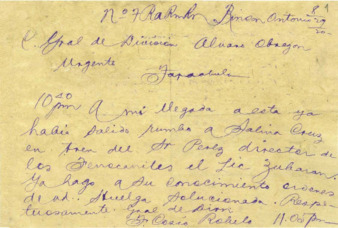 Nº 7 Rincon Antonio 
C. Gral de Division Alvaro Obregon
Urgente
10 40 pm A mi llegada a esta ya
habia salido rumbo a Salina Cruz
en tren del Sr Perez director de
los Ferrocarriles el Lic Zubaran.
Ya hago a su conocimiento ordenes
de ud. Huelga solucionada. Respe
tuosamente Gral de
Robelo 11.05 Pm